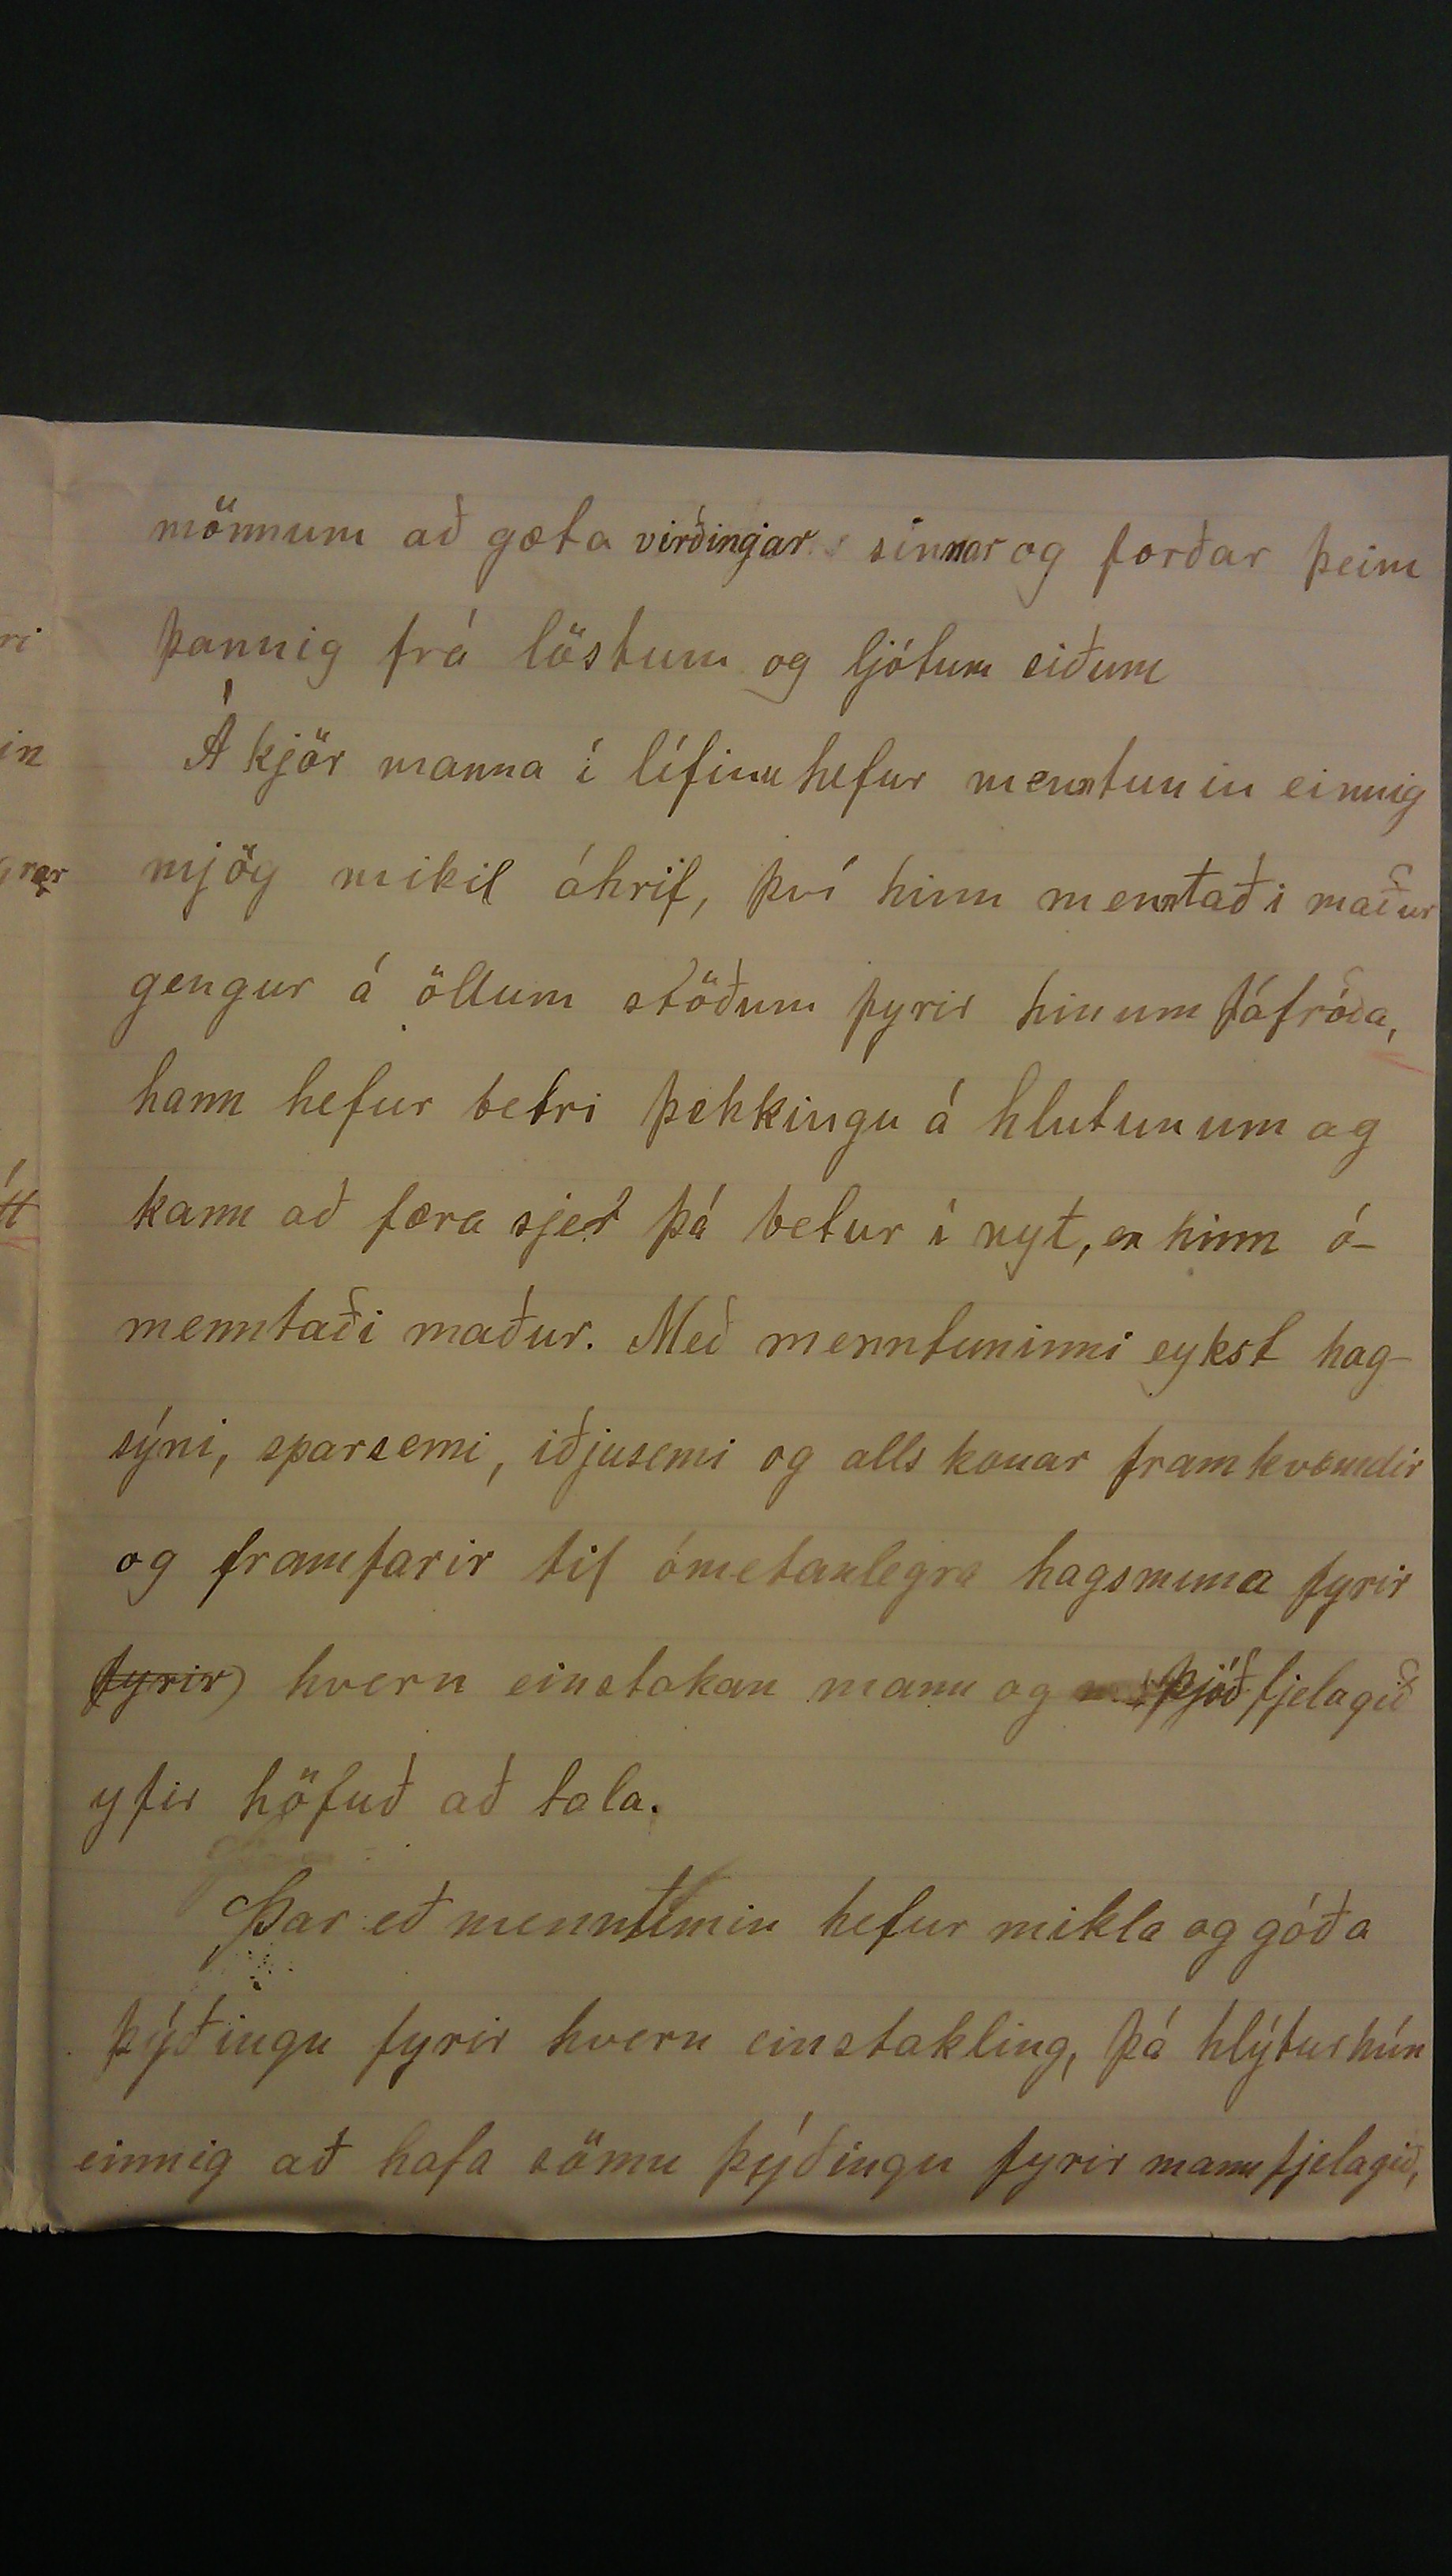 mönnum að gæta virðingar sinnar og forðar þeim
þannig frá löstum og ljótum siðum
Á kjör manna í lífinu hefur menntunin einnig
mjög mikil áhrif, því hinn menntaði maður
gengur á öllum stöðum fyrir hinum fáfróða,
hann hefur betri þekkingu á hlutunum og
kann að færa sjer þá betur í nyt, en hinn ó-
menntaði maður. Með menntuninni eykst hag-
sýni, sparsemi, iðjusemi og alls konar framkvæmdir
og framfarir til ómetanlegra hagsmuna fyrir
fyrir) hvern einstakan mann og þjóðfjelagið
yfir höfuð að tala.
Þar eð menntunin hefur mikla og góða
þýðingu fyrir hvern einstakling, þá hlýtur hún
einnig að hafa sömu þýðingu fyrir mannfjelagið,